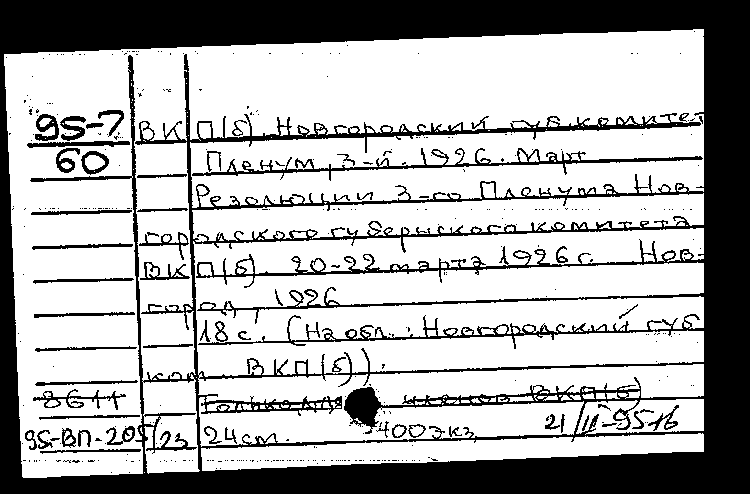 95-7 ВКП(б). Новгородский губ. комитет
60 Пленум, 3-й. 1926. Март
Резолюции 3-го Пленума Нов-
городского губернского комитета
ВКП(б). 20-22 марта 1926 г. Нов-
город, 1926
18 с. (На обл.: Новгородский губ
ком ВКП(б)).
8611 Только для членов ВКП(б)
95-ВП-205/23 24 см. 400 экз 21/II-95